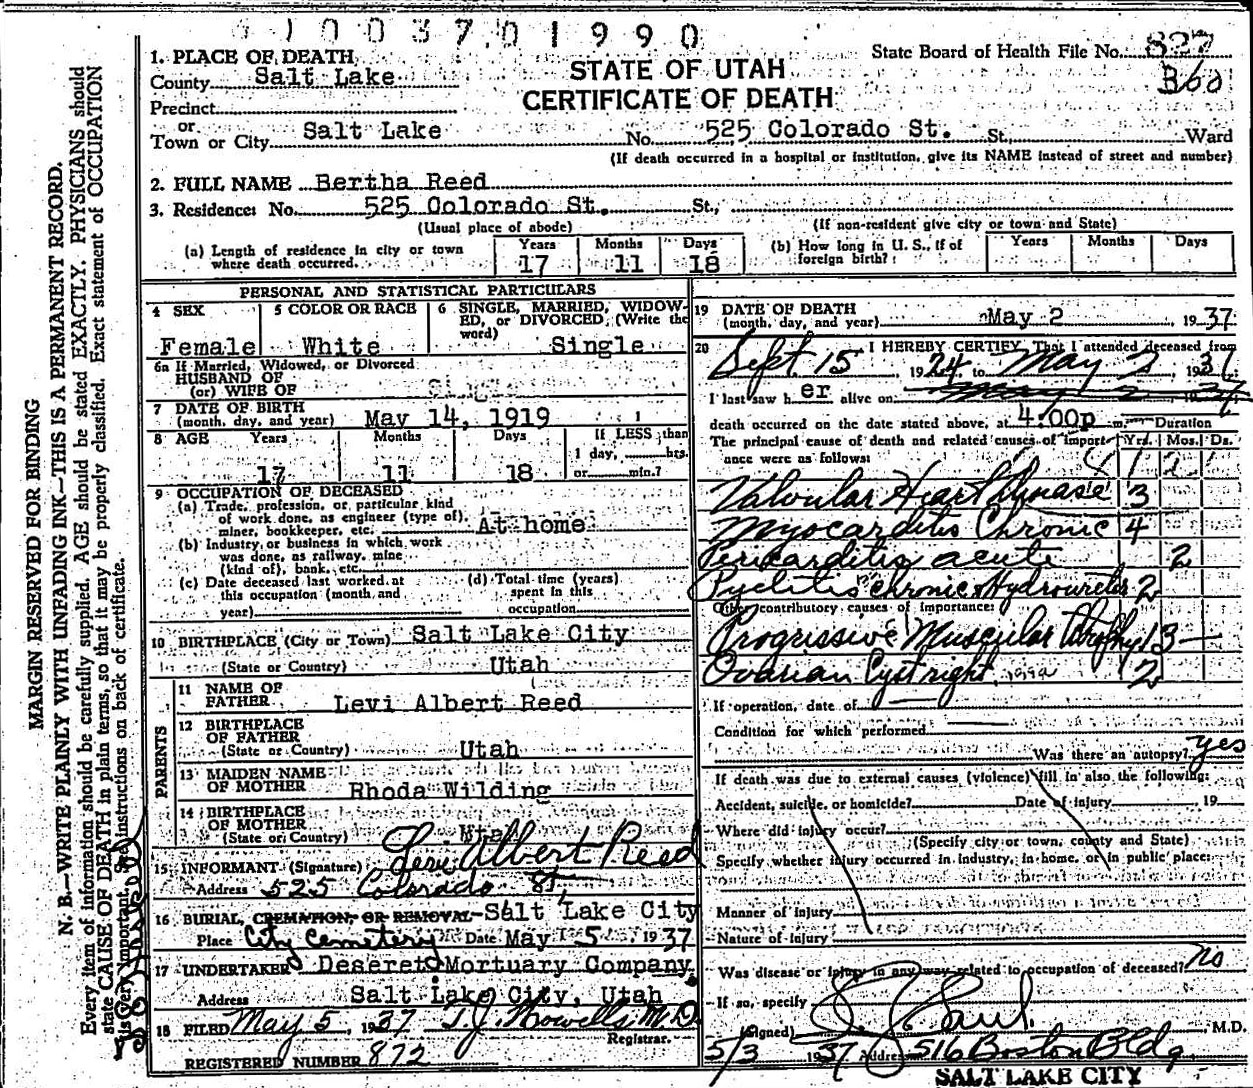 1003701990
1. PLACE OF DEATH
County Salt Lake
STATE OF UTAH
CERTIFICATE OF DEATH
State Board of Health File No. 827
B60
Precinct
or
Town or City Salt Lake No. 525 Colorado St. St. Ward
(If death occurred in a hospital or institution, give its NAME instead of street and number)
2. FULL NAME Bertha Reed
3. Residence: No. 525 Colorado St. St.,
(Usual place of abode) (If non-resident give city or town and State)
(a) Length of residence in city or town where death occurred. Years 17 Months 11 Days 18
(b) How long in U. S., if of foreign birth? Years Months Days
PERSONAL AND STATISTICAL PARTICULARS
4 SEX Female
5 COLOR OR RACE White
6 SINGLE, MARRIED, WIDOWED, or DIVORCED, (Write the word) Single
6a If Married, Widowed, or Divorced
HUSBAND OF
(or) WIFE OF
7 DATE OF BIRTH
(month, day, and year) May 14, 1919
8 AGE Years 17 Months 11 Days 18 If LESS than 1 day, hrs. or min.?
9 OCCUPATION OF DECEASED
(a) Trade, profession, or particular kind
of work done, as engineer (type of),
miner, bookkeeper, etc. At home
(b) Industry, or business in which work
was done, as railway, mine
(kind of), bank, etc.
(c) Date deceased last worked at this occupation (month and year)
(d) Total time (years) spent in this occupation
10 BIRTHPLACE (City or Town) Salt Lake City
(State or Country) Utah
PARENTS
11 NAME OF FATHER Levi Albert Reed
12 BIRTHPLACE OF FATHER
(State or Country) Utah
13 MAIDEN NAME OF MOTHER Rhoda Wilding
14 BIRTHPLACE OF MOTHER
(State or Country) Utah
15 INFORMANT (Signature) Levi Albert Reed
Address 525 Colorado St,
16 BURIAL, CREMATION, OR REMOVAL Salt Lake City
Place City Cemetery Date May 5 1937
17 UNDERTAKER Deseret Mortuary Company
Address Salt Lake City, Utah
18 FILED May 5, 1937 T.J. Howells M.D.
Registrar.
REGISTERED NUMBER 872
19 DATE OF DEATH
(month, day, and year) May 2, 1937
20 I HEREBY CERTIFY, That I attended deceased from
Sept. 15 1924 to May 2 1937
I last saw h er alive on May 2 1937
death occurred on the date stated above, at 4:00p m. Duration
The principal cause of death and related causes of importance were as follows: Yrs. Mos. Ds.
Valvular Heart Disease 3
Myocarditis Chronic 4
Pericarditis acute 2
Pyelitis chronic & Hydroureter 2
Other contributory causes of importance:
Progressive Muscular Atrophy 13
Ovarian Cyst right 2
If operation, date of
Condition for which performed
Was there an autopsy? yes
If death was due to external causes (violence) fill in also the following:
Accident, suicide, or homicide? Date of injury 19
Where did injury occur?
(Specify city or town, county and State)
Specify whether injury occurred in industry, in home, or in public place:
Manner of injury
Nature of injury
Was disease or injury in any way related to occupation of deceased? No
If so, specify
(Signed) Paul M.D.
5/3 1937 Address 516 Boston Bldg.
SALT LAKE CITY
MARGIN RESERVED FOR BINDING
N. B.—WRITE PLAINLY WITH UNFADING INK—THIS IS A PERMANENT RECORD.
Every item of information should be carefully supplied. AGE should be stated EXACTLY. PHYSICIANS should
state CAUSE OF DEATH in plain terms, so that it may be properly classified. Exact statement of OCCUPATION
is very important. See instructions on back of certificate.